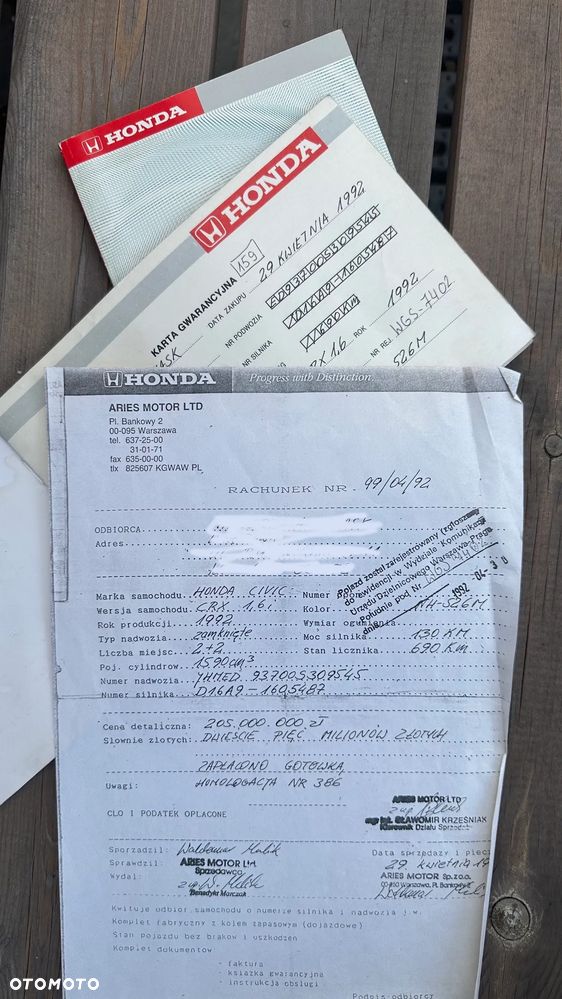 HONDA
HONDA
KARTA GWARANCYJNA 159
DATA ZAKUPU 29 KWIETNIA 1992
NR PODWOZIA
NR SILNIKA D16A9-1605487
ROK 1992
NR REJ. WGS-7402
526M
HONDA Progress with Distinction.
ARIES MOTOR LTD
Pl. Bankowy 2
00-095 Warszawa
tel. 637-25-00
31-01-71
fax 635-00-00
tlx 825607 KGWAW PL
RACHUNEK NR. 99/04/92
ODBIORCA
Adres
Pojazd został zarejestrowany (zgłoszony
do ewidencji w Wydziale Komunikacji
Urzędu Dzielnicowego Warszawa-Praga
Południe pod Nr.
dnia 1992-04-30
Marka samochodu. HONDA CIVIC
Wersja samochodu CRX 1.6i Kolor
Rok produkcji 1992 Wymiar ogumienia
Typ nadwozia zamknięte Moc silnika 130 KM
Liczba miejsc 2+2 Stan licznika 690 Km
Poj. cylindrow 1590 cm³
Numer nadwozia JHMED 93700S309545
Numer silnika D16A9-1605487
Cena detaliczna: 205.000.000 zł
Slownie zlotych: DWIEŚCIE PIĘĆ MILIONÓW ZŁOTYCH
ZAPŁACONO GOTÓWKĄ
Uwagi: HOMOLOGACJA NR 386
CLO I PODATEK OPLACONE
ARIES MOTOR LTD
inż. SŁAWOMIR KRZEŚNIAK
Kierownik Działu Sprzedaży
Sporzadzil: Waldemar
Data sprzedazy i piec
29 kwietnia 19
Sprawdzil: ARIES MOTOR Ltd.
Sprzedawca
Wydal:
Benedykt Marczak
ARIES MOTOR Sp.z o.o.
00-950 Warszawa, Pl. Bankowy 2
Kwituje odbior samochodu o numerze silnika i nadwozia j.w.
Komplet fabryczny z kolem zapasowym (dojazdowe)
Stan pojazdu bez brakow i uszkodzen
Komplet dokumentow:
- faktura
- ksiazka gwarancyjna
- instrukcja obslugi
Podpis odbiorcy
OTOMOTO